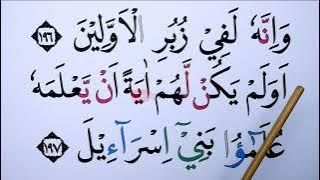 وَاِنَّهٗ لَفِيْ زُبُرِ الْاَوَّلِيْنَ ١٩٦
اَوَلَمْ يَكُنْ لَّهُمْ اٰيَةً اَنْ يَّعْلَمَهٗ
عُلَمٰٓؤُا بَنِيْٓ اِسْرَآءِيْلَ ١٩٧